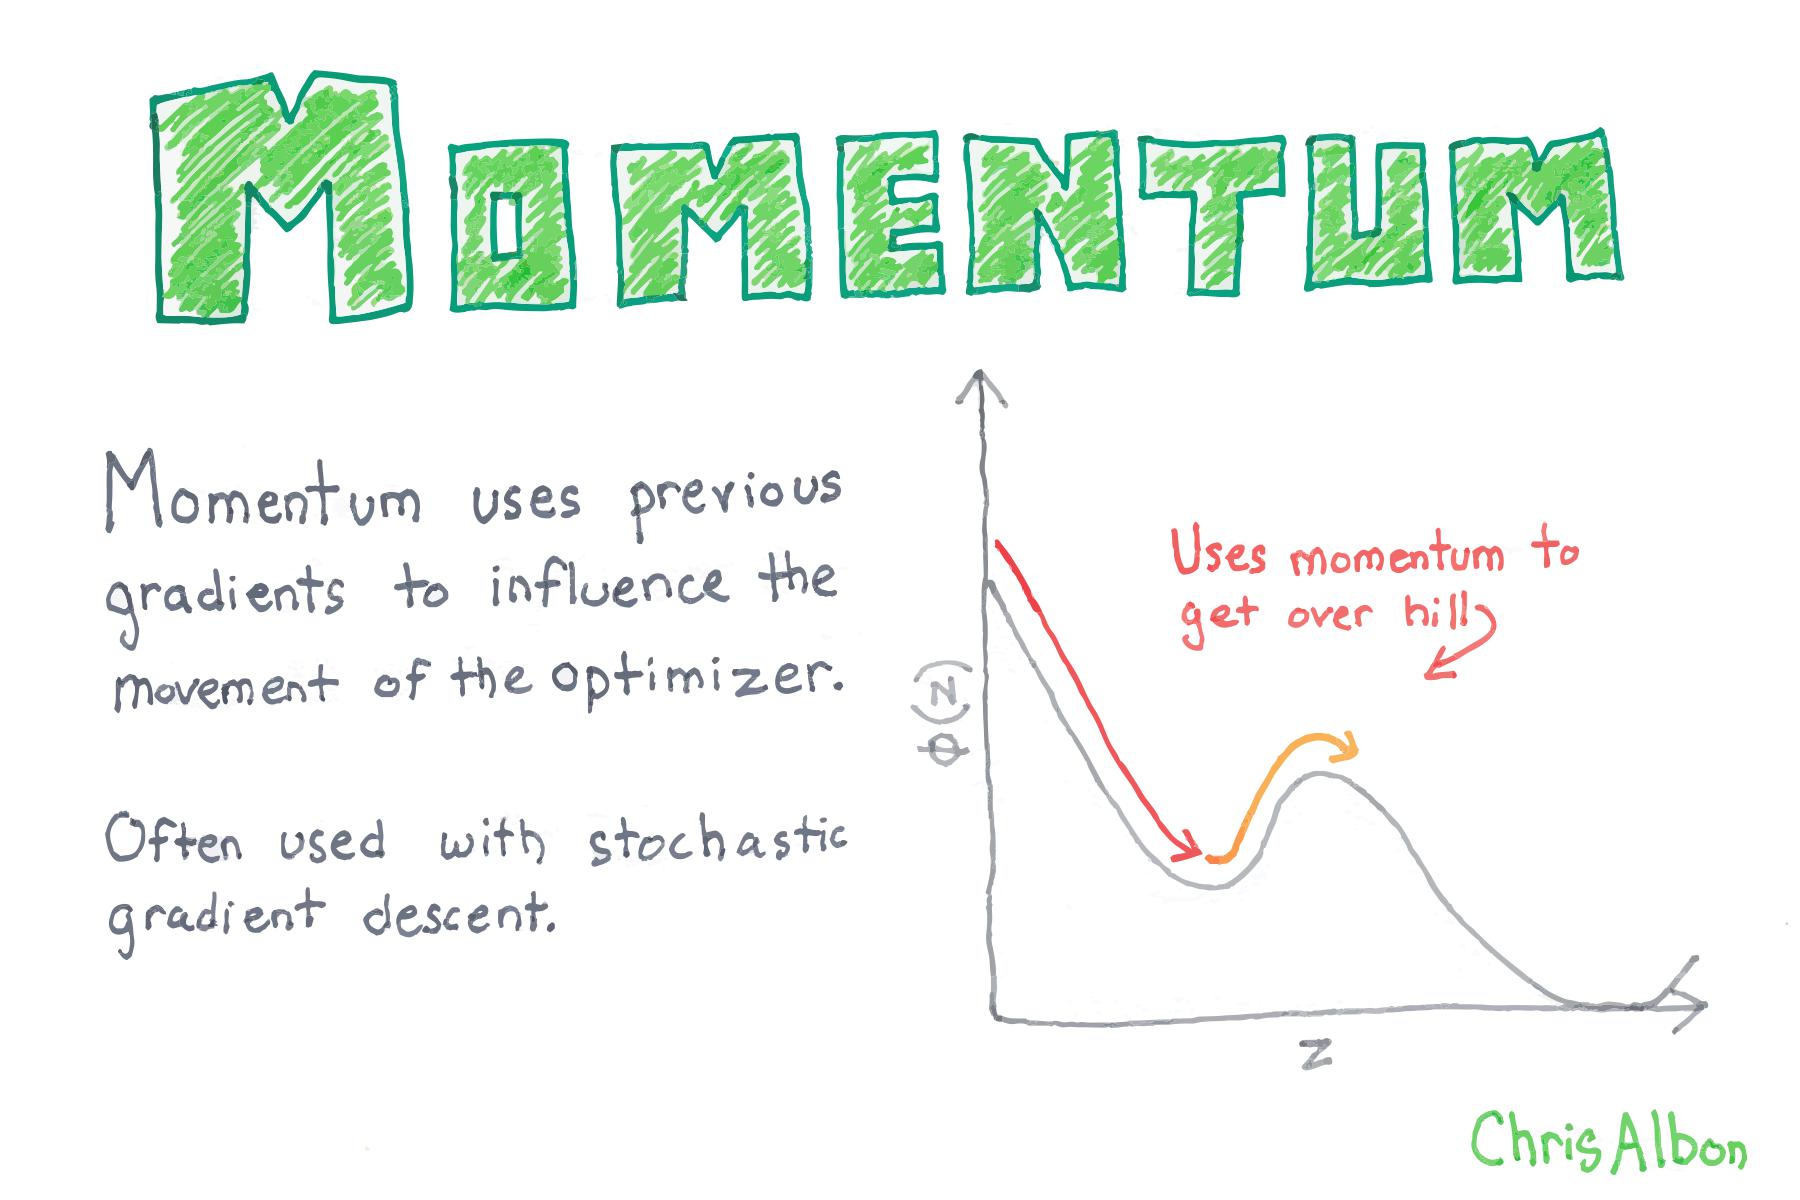 MOMENTUM
Momentum uses previous
gradients to influence the
movement of the optimizer.
Often used with stochastic
gradient descent.
Uses momentum to
get over hill
ϕ(z)
z
Chris Albon